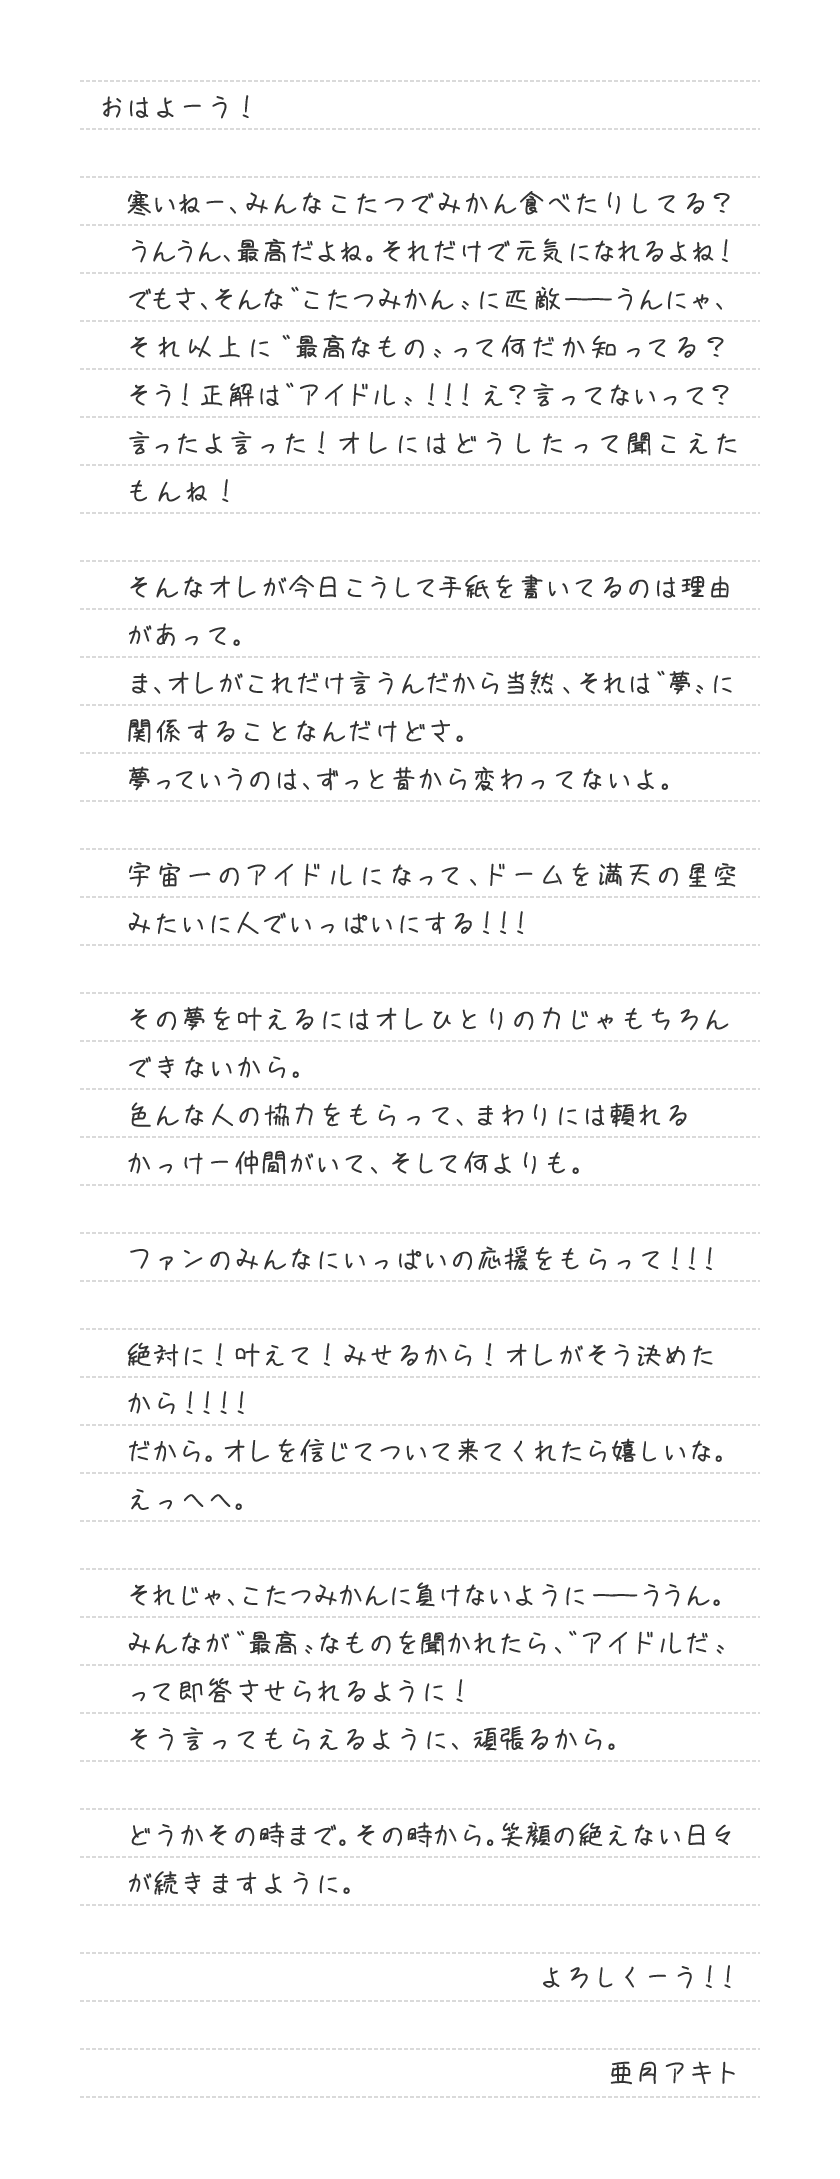 おはよーう！
寒いねー、みんなこたつでみかん食べたりしてる？
うんうん、最高だよね。それだけで元気になれるよね！
でもさ、そんな〝こたつみかん〟に匹敵――うんにゃ、
それ以上に〝最高なもの〟って何だか知ってる？
そう！正解は〝アイドル〟！！！え？言ってないって？
言ったよ言った！オレにはどうしたって聞こえた
もんね！
そんなオレが今日こうして手紙を書いてるのは理由
があって。
ま、オレがこれだけ言うんだから当然、それは〝夢〟に
関係することなんだけどさ。
夢っていうのは、ずっと昔から変わってないよ。
宇宙一のアイドルになって、ドームを満天の星空
みたいに人でいっぱいにする！！！
その夢を叶えるにはオレひとりの力じゃもちろん
できないから。
色んな人の協力をもらって、まわりには頼れる
かっけー仲間がいて、そして何よりも。
ファンのみんなにいっぱいの応援をもらって！！！
絶対に！叶えて！みせるから！オレがそう決めた
から！！！！
だから。オレを信じてついて来てくれたら嬉しいな。
えっへへ。
それじゃ、こたつみかんに負けないように――ううん。
みんなが〝最高〟なものを聞かれたら、〝アイドルだ〟
って即答させられるように！
そう言ってもらえるように、頑張るから。
どうかその時まで。その時から。笑顔の絶えない日々
が続きますように。
よろしくーう！！
亜月アキト